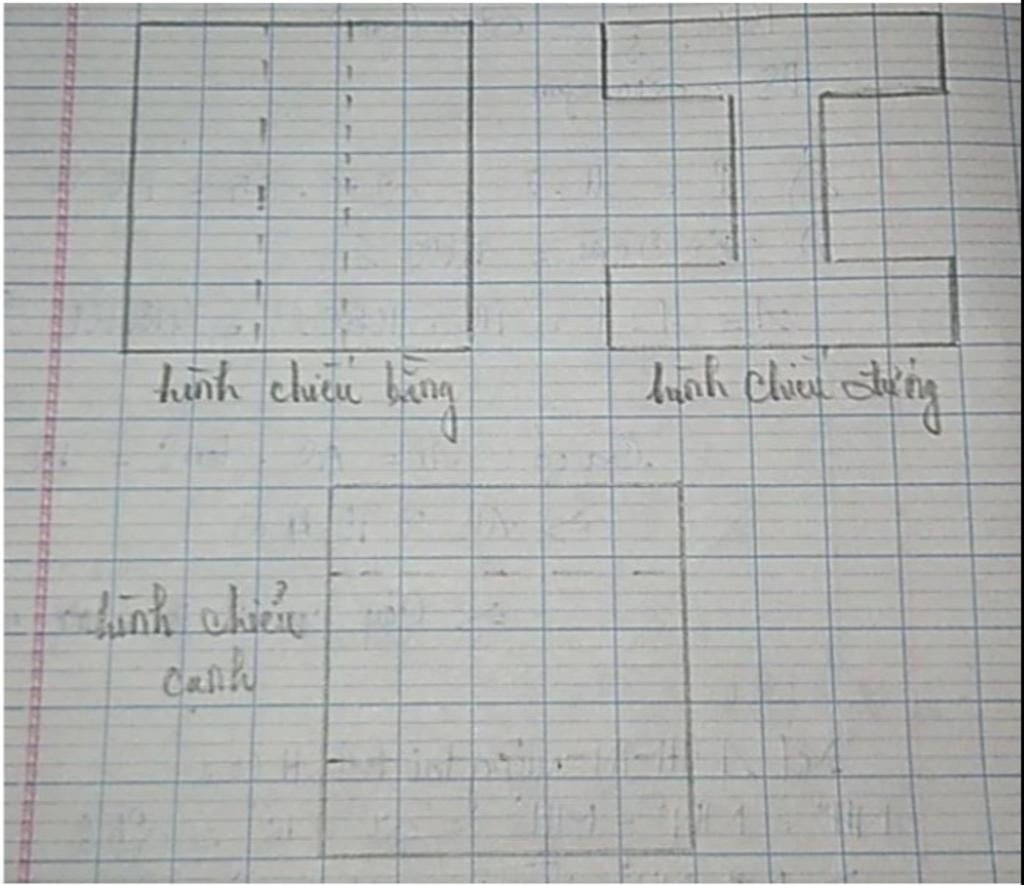 hình chiếu bằng
hình chiếu đứng
hình chiếu
cạnh